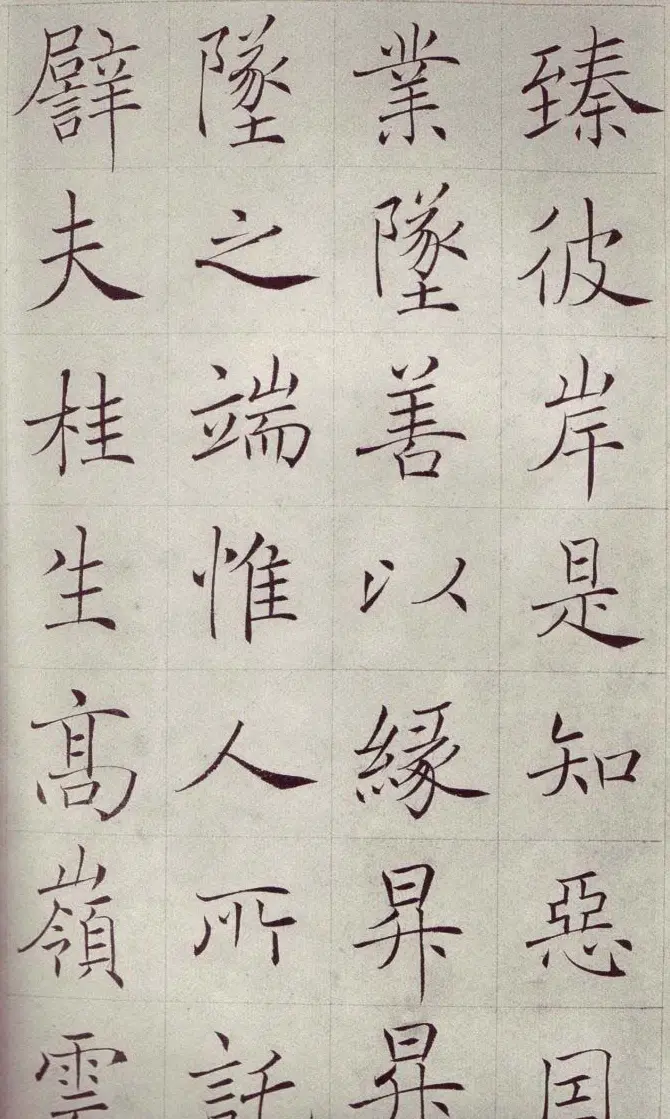 臻彼岸是知惡因
業墜善以緣昇昇
墜之端惟人所託
譬夫桂生髙嶺雲